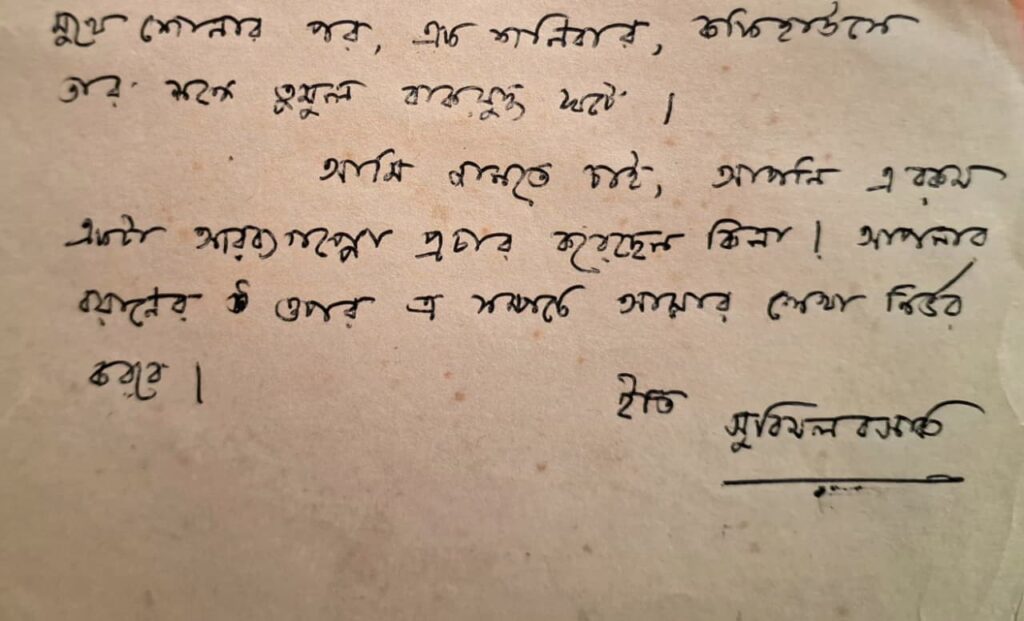 মুখে শোনার পর, এক শনিবার, কফিহাউসে
তার সঙ্গে তুমুল বাকযুদ্ধ ঘটে ।
আমি জানতে চাই, আপনি এ রকম
একটা আরব্যগপ্পো প্রচার করেছেন কিনা । আপনার
বয়ানের ওপর এ সম্পর্কে আমার লেখা নির্ভর
করবে ।
ইতি
সুবিমল বসাক